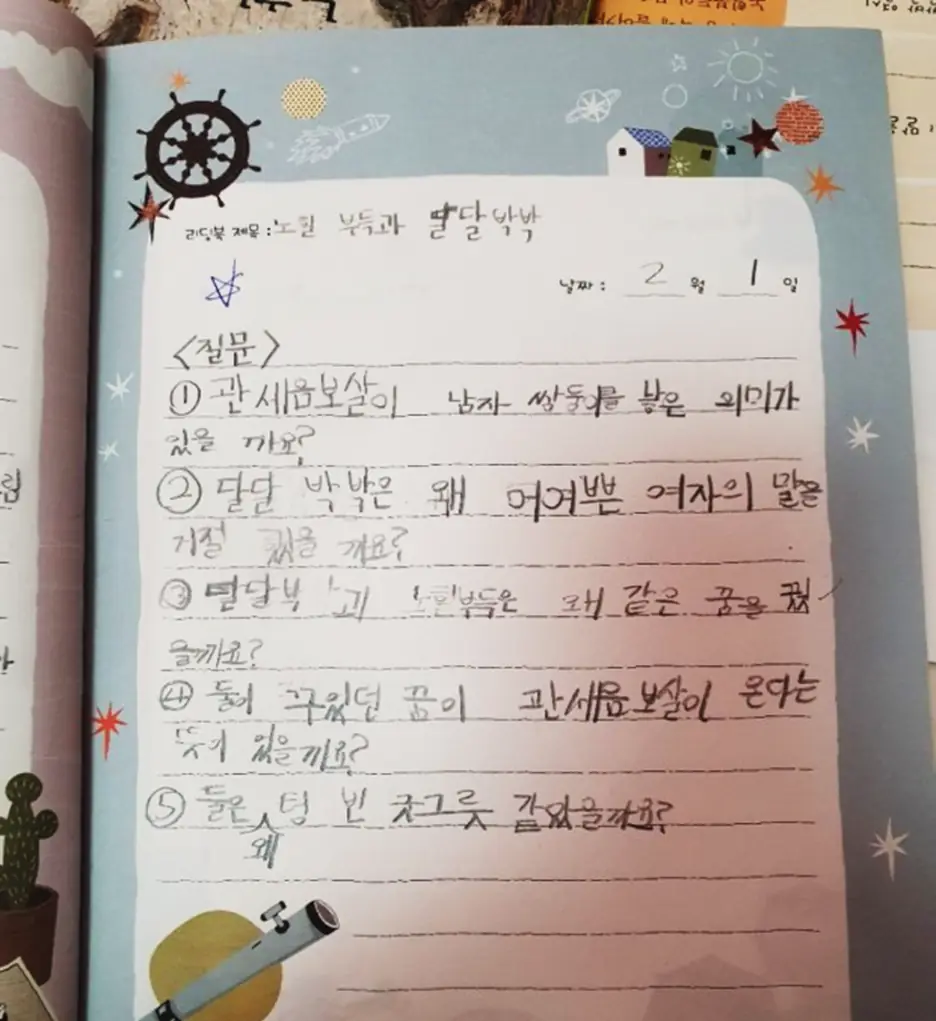 리딩북 제목 : 노힐 부득과 달달박박
날짜 : 2 월 1 일
<질문>
① 관세음보살이 남자 쌍둥이를 낳은 의미가
있을 까요?
② 달달 박박은 왜 어여쁜 여자의 말을
거절 했을 까요?
③ 달달부 노힐부득은 왜 같은 꿈을 꿨
을까요?
④ 둘이 꾸었던 꿈이 관세음보살이 온다는
뜻이 있을까요?
⑤ 둘은 왜 텅 빈 굿그릇 같았을까요?